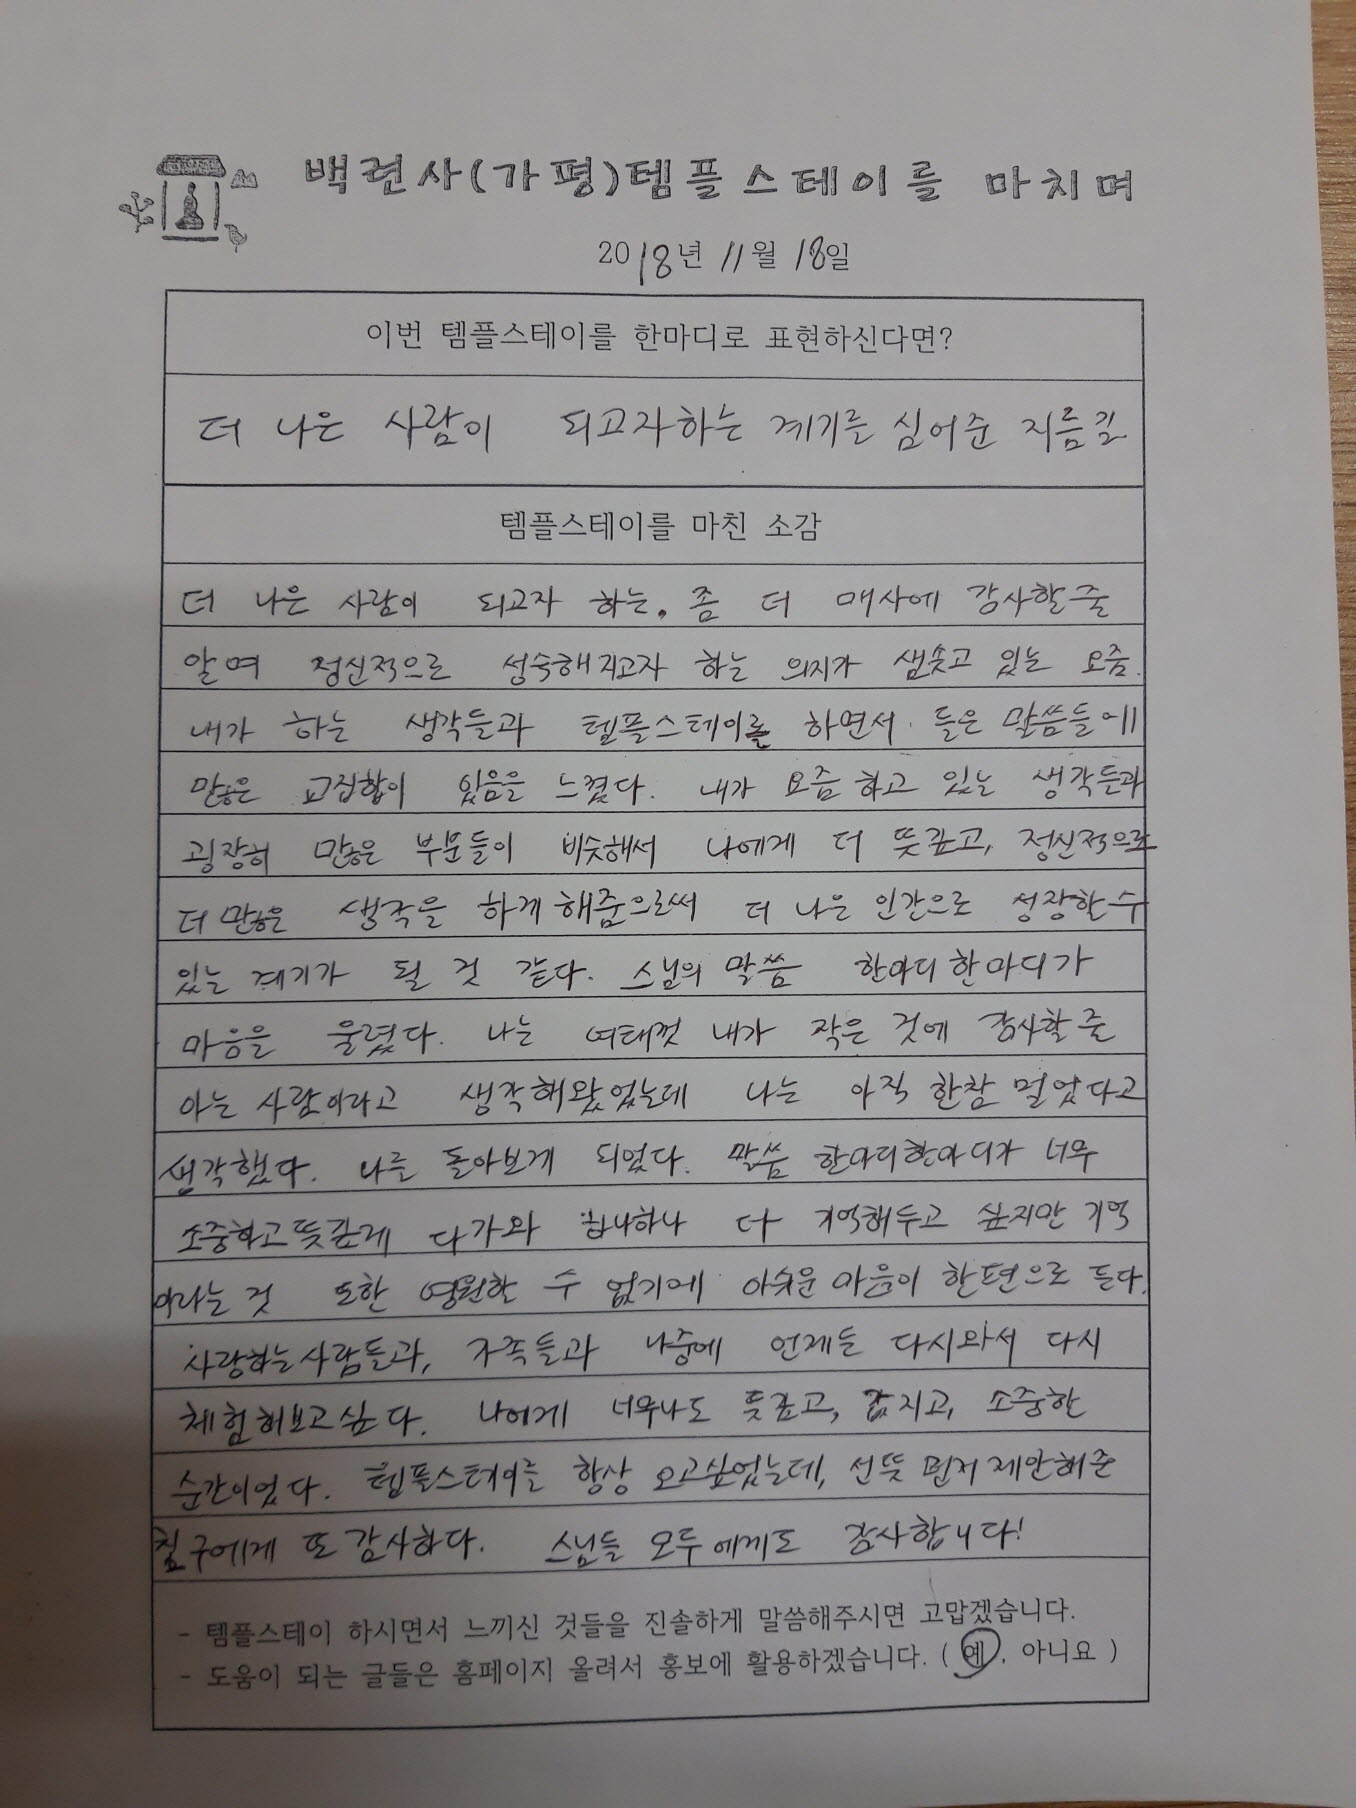 백련사(가평)템플스테이를 마치며
2018년 11월 18일
이번 템플스테이를 한마디로 표현하신다면?
더 나은 사람이 되고자하는 계기를 심어준 지름길
템플스테이를 마친 소감
더 나은 사람이 되고자 하는, 좀 더 매사에 감사할줄
알며 정신적으로 성숙해지고자 하는 의지가 샘솟고 있는 요즘.
내가 하는 생각들과 템플스테이를 하면서 들은 말씀들에
많은 교집합이 있음을 느꼈다. 내가 요즘 하고 있는 생각들과
굉장히 많은 부분들이 비슷해서 나에게 더 뜻깊고, 정신적으로
더 많은 생각을 하게 해줌으로써 더 나은 인간으로 성장할 수
있는 계기가 될 것 같다. 스님의 말씀 한마디한마디가
마음을 울렸다. 나는 여태껏 내가 작은 것에 감사할 줄
아는 사람이라고 생각해왔었는데 나는 아직 한참 멀었다고
생각했다. 나를 돌아보게 되었다. 말씀 한마디한마디가 너무
소중하고 뜻깊게 다가와 하나하나 다 기억해두고 싶지만 기억
이라는 것 또한 영원할 수 없기에 아쉬운 마음이 한편으로 든다.
사랑하는사람들과, 가족들과 나중에 언제든 다시와서 다시
체험해보고싶다. 나에게 너무나도 뜻깊고, 값지고, 소중한
순간이었다. 템플스테이를 항상 오고싶었는데, 선뜻 먼저 제안해준
친구에게 또 감사하다. 스님들 모두에게도 감사합니다!
- 템플스테이 하시면서 느끼신 것들을 진솔하게 말씀해주시면 고맙겠습니다.
- 도움이 되는 글들은 홈페이지 올려서 홍보에 활용하겠습니다. ( 예, 아니요 )